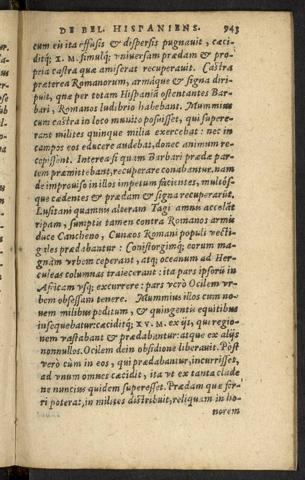 DE BEL. HISPANIENS. 943
cum eũ ita effusis & dispersis pugnauit, cæci-
ditq; X. M. simulq; vniuersam prædam & pro-
pria castra quæ amiserat recuperauit. Castra
præterea Romanorum, armáque & signa diri-
puit, quæ per totam Hispaniã ostentantes Bar-
bari, Romanos ludibrio habebant. Mummius
cum castra in loco munito posuisset, qui supere-
rant milites quinque milia exercebat: nec in
campos eos educere audebat, donec animum re-
cepissent. Interea si quam Barbari prædæ par-
tem præmittebant, recuperare conabantur. nam
de improuiso in illos impetum facientes, multos-
que cædentes & prædam & signa recuperarũt.
Lusitani quamuis alteram Tagi amnis accolãt
ripam, sumptis tamen contra Romanos armis
duce Caucheno, Cunæos Romani populi vecti-
gales prædabantur: Conistorgimq; eorum ma-
gnam vrbem ceperant, atq; oceanum ad Her-
culeas columnas traiecerant: ita pars ipsorũ in
Africam vsq; excurrere: pars verò Ocilem vr-
bem obsessam tenere. Mummius illos cum no-
uem milibus peditum, & quingentis equitibus
insequebatur: cæciditq; XV. M. ex ijs, qui regio-
nem vastabant & prædabantur: atque ex alijs
nonnullos. Ocilem dein obsidione liberauit. Pòst
verò cùm in eos, qui prædabantur, incurrisset,
ad vnum omnes cæcidit, ita vt ex tanta clade
ne nuncius quidem superesset. Prædam quæ fer-
ri poterat, in milites distribuit, reliquam in ho-
norem